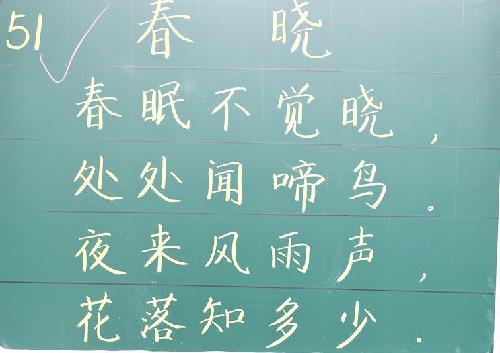 51 春 晓
春眠不觉晓，
处处闻啼鸟。
夜来风雨声，
花落知多少.